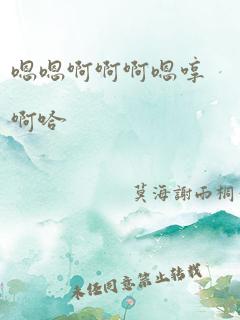 嗯嗯啊啊啊嗯哼
啊哈
莫海謝雨桐
未经同意禁止转载